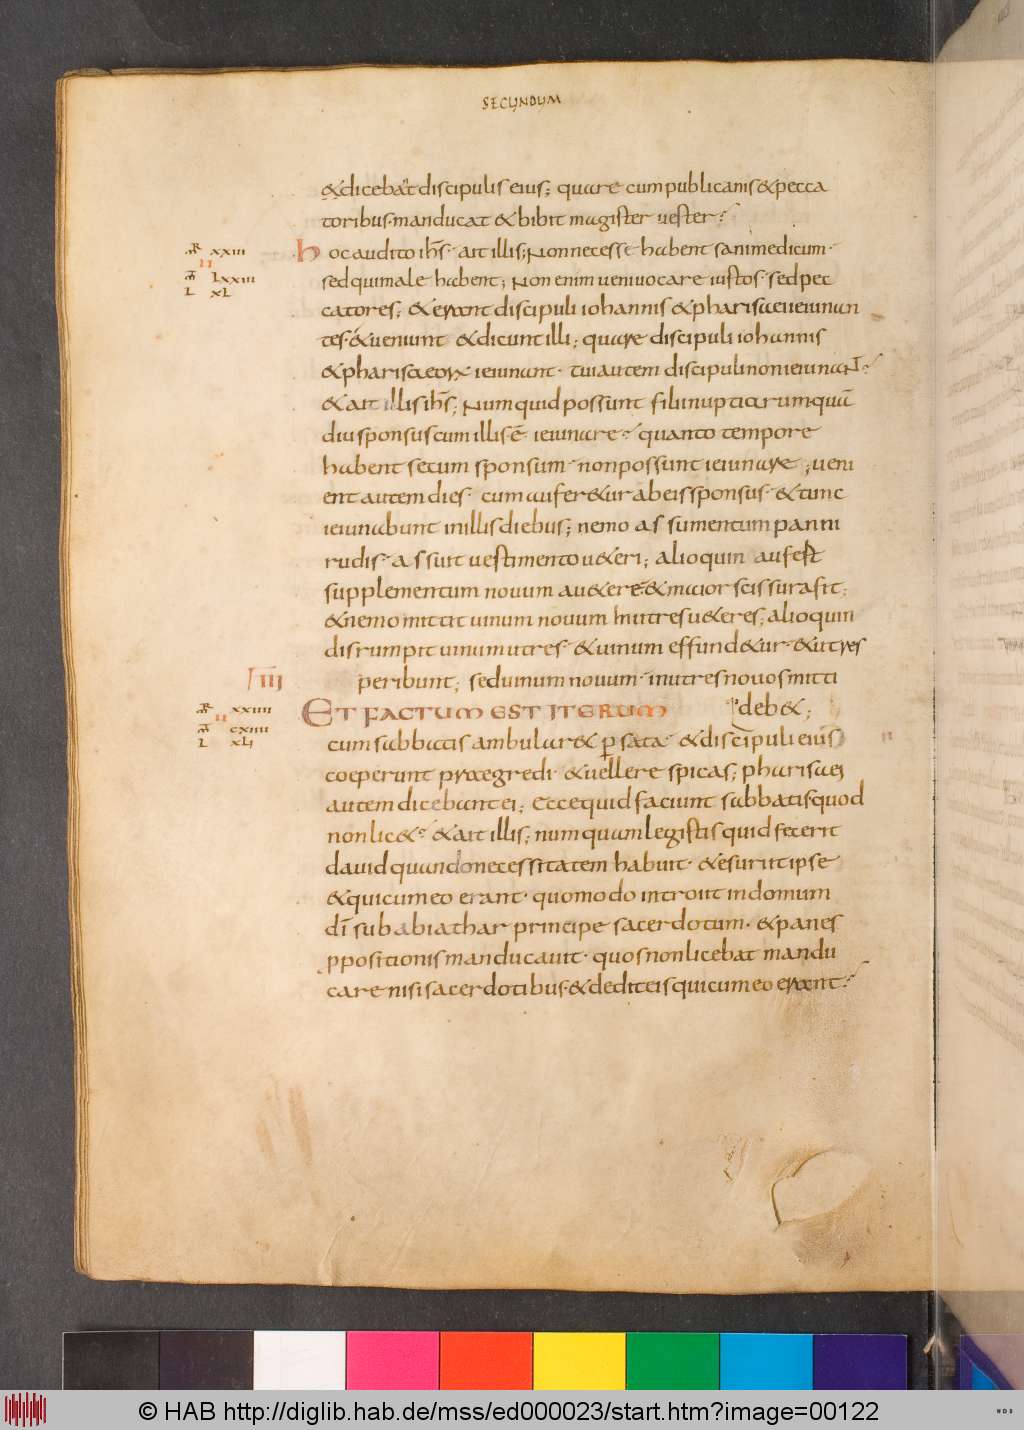 SECUNDUM
& dicebat discipulis eius; quare cum publicanis & pecca
toribus· manducat & bibit magister uester?
MR XXIII
II
MT LXXIII
L XL
hoc audito ih̅s· ait illis; Non necesse habent sani medicum·
sed qui male habent; Non enim ueni uocare iustos· sed pec
catores; & erant discipuli iohannis & pharisaei ieiunan
tes· & ueniunt & dicunt illi; quare discipuli iohannis
& pharisaeorum ieiunant· tui autem discipuli non ieiunant?
& ait illis ih̅s; Numquid possunt filii nuptiarum quā
diu sponsus cum illis ē ieiunare? quanto tempore
habent secum sponsum· non possunt ieiunare; ueni
ent autem dies· cum aufer&ur ab eis sponsus· & tunc
ieiunabunt in illis diebus; nemo assumentum panni
rudis· assuit uestimento u&eri; alioquin aufert
supplementum nouum a u&ere· & maior scissura fit;
& nemo mittit uinum nouum in utres u&eres; alioquin
disrumpit uinum utres· & uinum effund&ur· & utres
peribunt; sed uinum nouum· in utres nouos mitti
deb&;
IIII
MR XXIIII
II
MT CXIIII
L XLI
ET FACTUM EST ITERUM
cum sabbatis ambular& p̲ sata· & discipuli eius
coeperunt praegredi· & uellere spicas; pharisaei
autem dicebant ei; Ecce quid faciunt sabbatis quod
non lic&? & ait illis; numquam legistis quid fecerit
dauid quando necessitatem habuit· & esuriit ipse
& qui cum eo erant· quomodo introiit in domum
dī sub abiathar principe sacerdotum· & panes
p̲positionis manducauit· quos non licebat mandu
care nisi sacerdotibus· & dedit eis qui cum eo erant?
© HAB http://diglib.hab.de/mss/ed000023/start.htm?image=00122